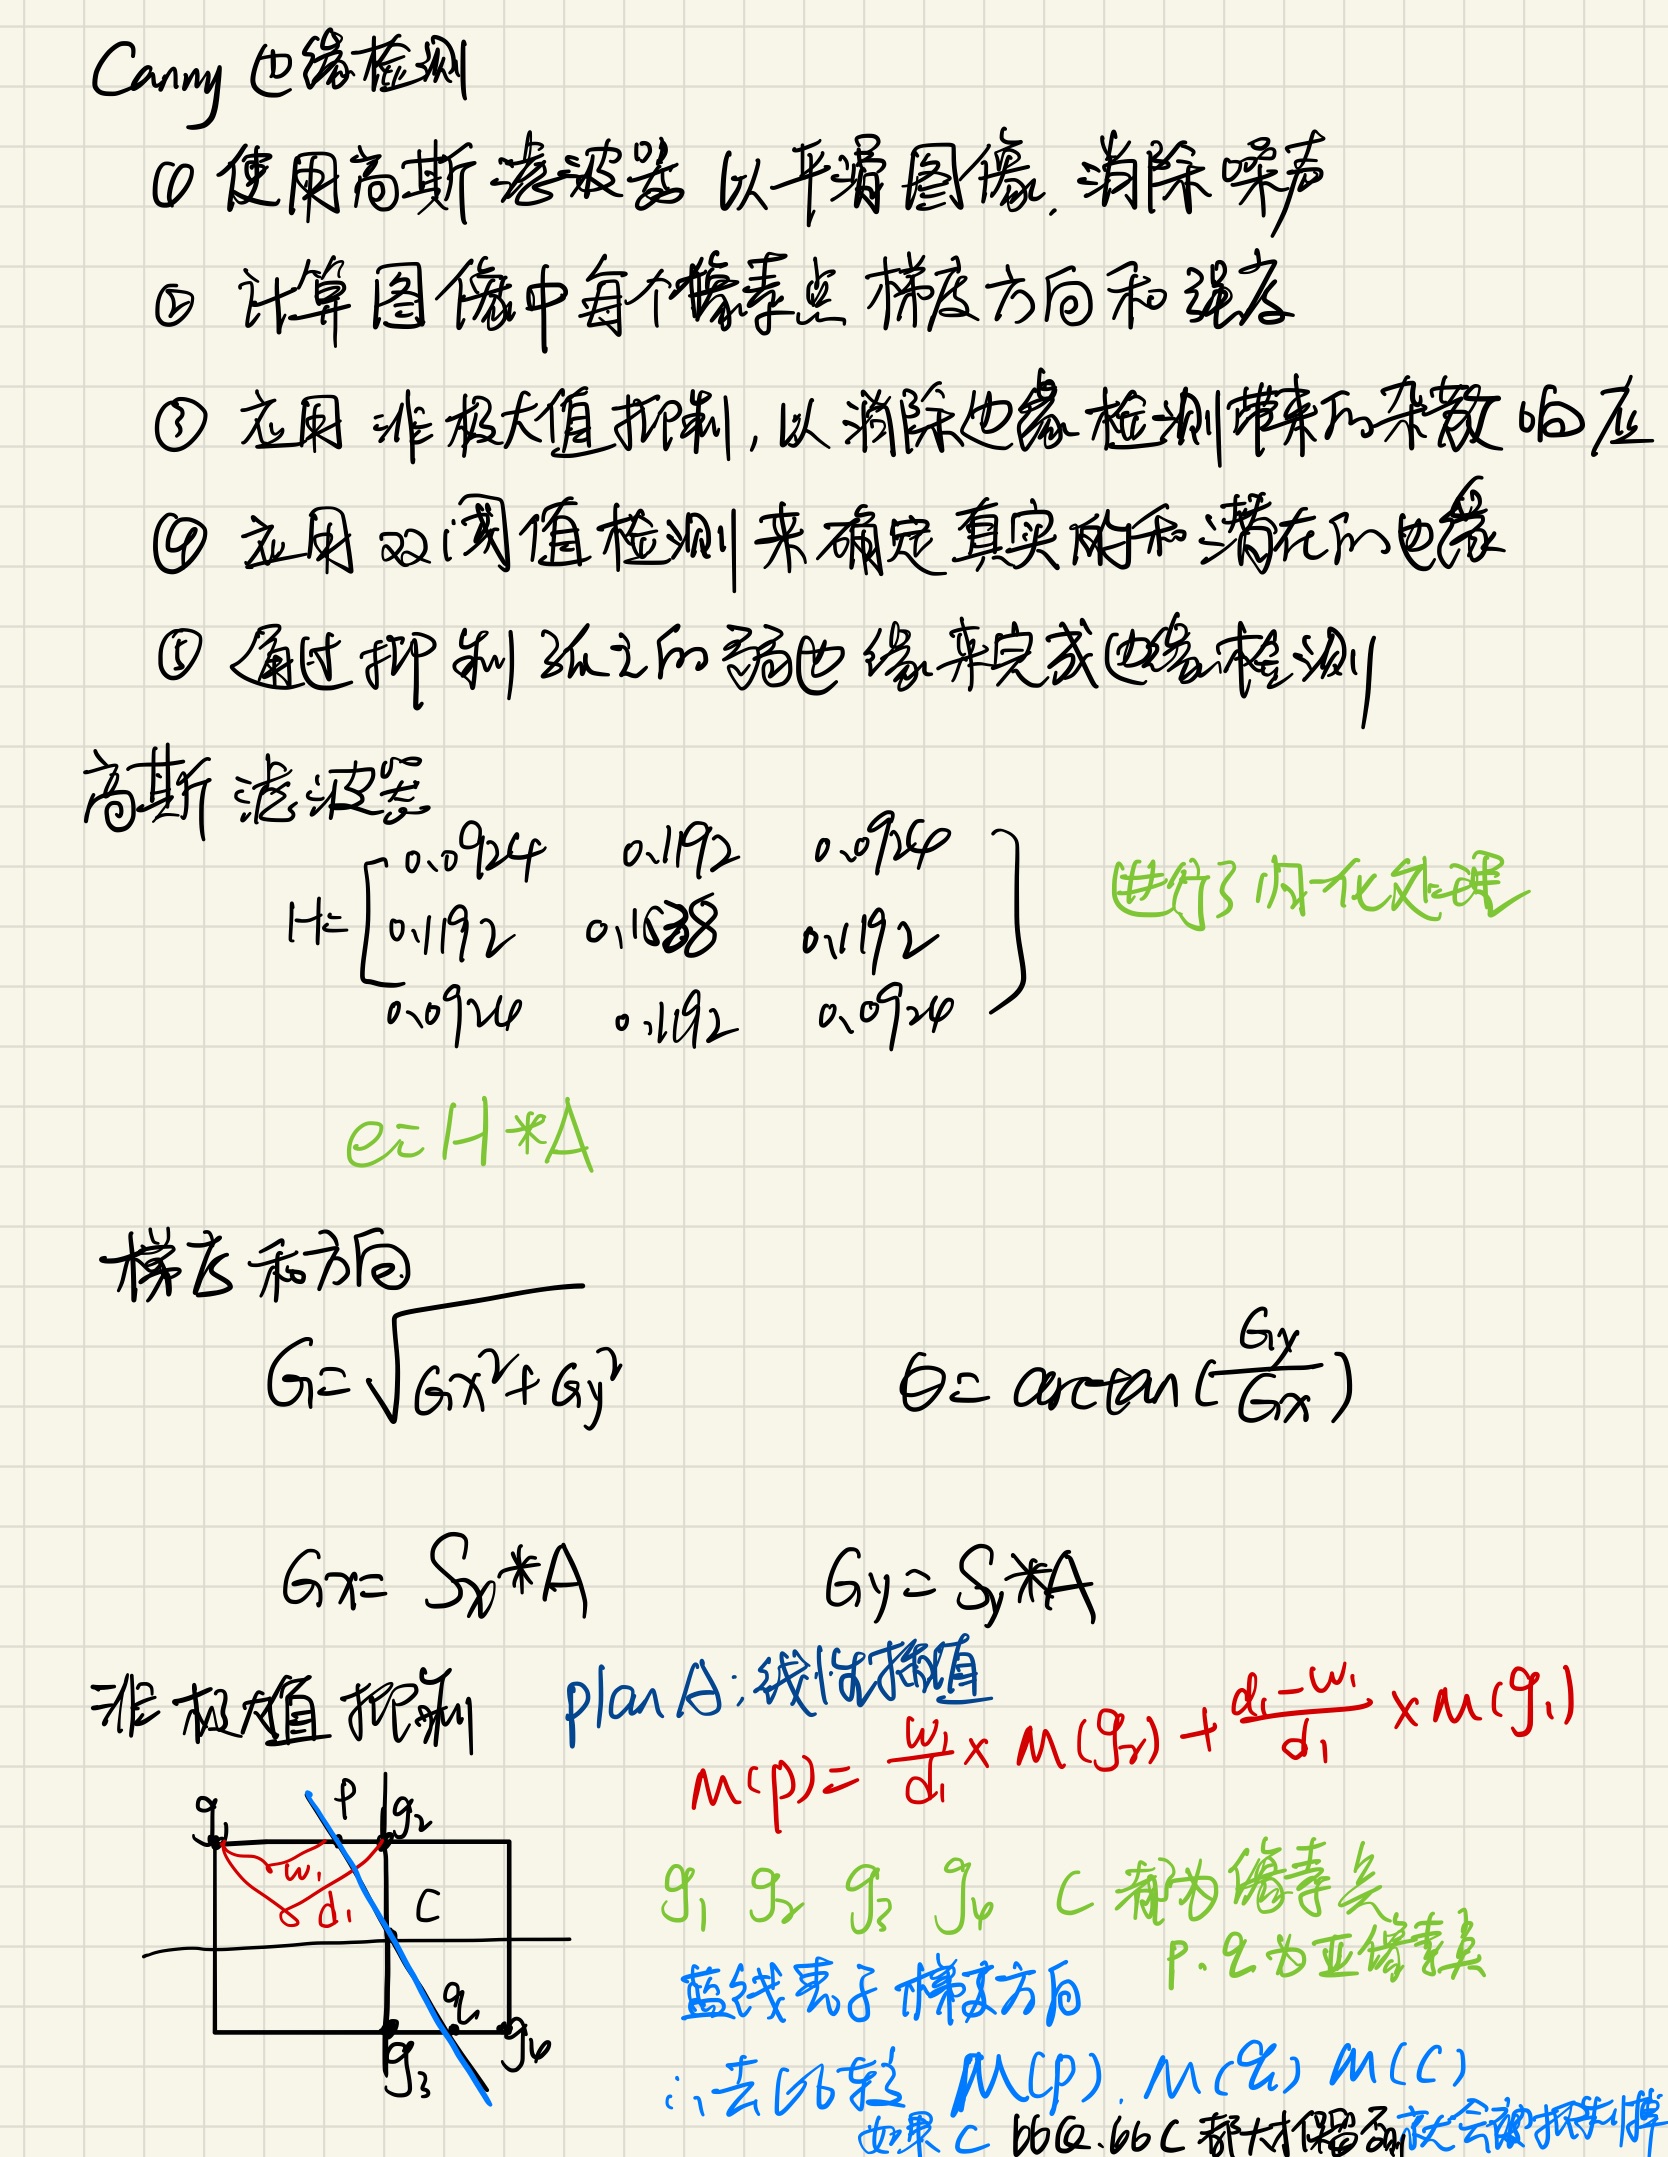 Canny 边缘检测
① 使用高斯滤波器 以平滑图像. 消除噪声
② 计算图像中每个像素点 梯度方向和强度
③ 应用 非极大值抑制, 以消除边缘检测带来的杂散响应
④ 应用 双阈值检测来确定真实的和潜在的边缘
⑤ 通过抑制孤立的弱边缘来完成边缘检测
高斯滤波器
H= [ 0.0924 0.1192 0.0924
0.1192 0.1538 0.1192
0.0924 0.1192 0.0924 ]
进行了归一化处理
e=H*A
梯度和方向
G=√Gx²+Gy²
θ= arctan(Gy/Gx)
Gx= Sx*A
Gy= Sy*A
非极大值抑制
plan A: 线性插值
M(p)= w₁/d₁ × M(g₂) + d₁-w₁/d₁ × M(g₁)
g₁ p g₂
w₁
d₁ C
q
g₃ g₄
g₁ g₂ g₃ g₄ C 都为像素点
p. q 为亚像素点
蓝线表示梯度方向
∴去比较 M(p). M(q) M(C)
如果 C 比Q.比C都大才保留否则就会被抑制掉